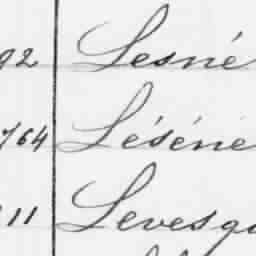 92 Lesné
764 Lésénie
11 Levesq